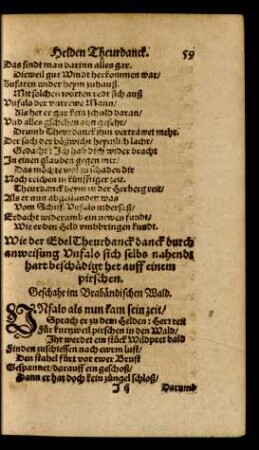 Helden Theurdanck. 59
Das findt man darinn alles gar.
Dieweil gut Windt herkommen war/
Zufarin wider heym zuhauß.
Mit solchen worten redt sich auß
Vnfalo der vntrewe Mann/
Als het er gar kein schuld daran/
Vnd alles gschehen ohn geferd/
Drumb Theurdanck jhm vertrawet mehr.
Der sach der bößwicht heymlich lacht/
Gedacht: Ich hab dich wider bracht
In einen glauben gegen mir/
Das möchte wol zu schaden dir
Noch reichen in künfftiger zeit.
Theurdanck heym in der Herberg reit/
Als er nun abgestanden was
Vom Schiff. Vnfalo nidersaß/
Erdacht widerumb ein newen fundt/
Wie er den Held vmbbringen kundt.
Wie der Edel Theurdanck danck durch
anweisung Vnfalo sich selbs nahendt
hart beschädigt het auff einem
pirschen.
Geschahe im Brabändischen Wald.
VNfalo als nun kam sein zeit/
Sprach er zu dem Helden: Herr reit
Für kurtzweil pirschen in den Wald/
Ihr werdet ein stück Wildpret bald
Finden zuschiessen nach ewrm lust/
Den stahel fürt vor ewer Brust
Gespannet/ darauff ein geschoß/
Dann er hat doch kein züngel schloß/
Darumb